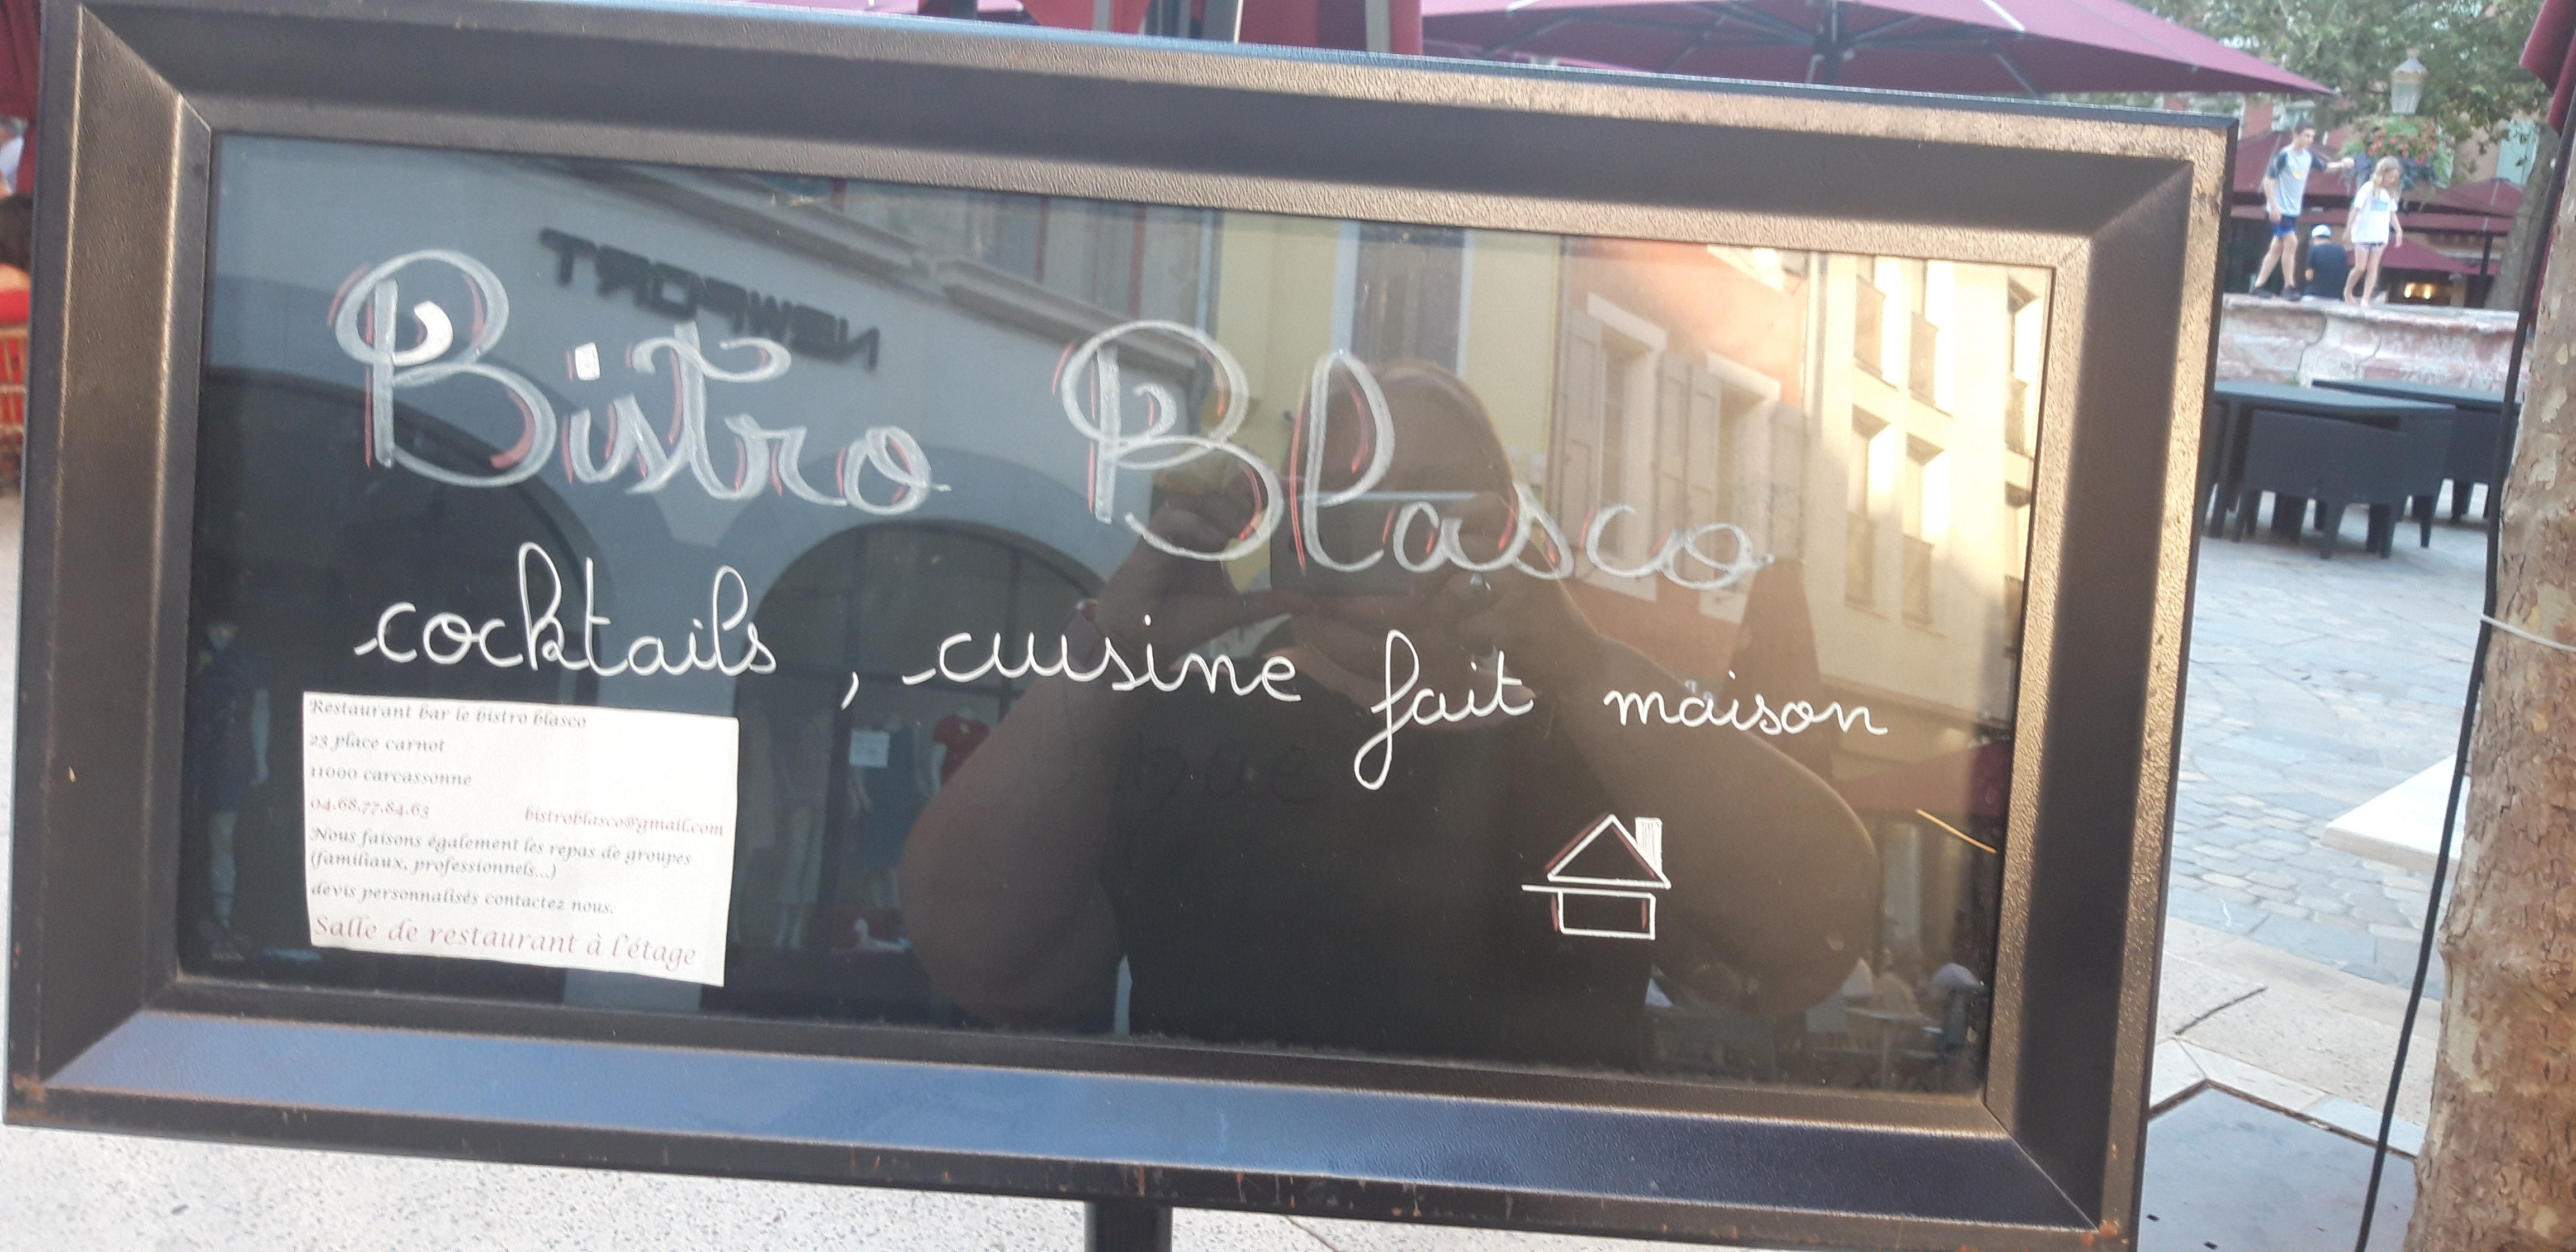 NEWPORT
Bistro Blasco
cocktails , cuisine fait maison
Restaurant bar le bistro blasco
23 place carnot
11000 carcassonne
04.68.77.84.63 bistroblasco@gmail.com
Nous faisons également les repas de groupes
(familiaux, professionnels...)
devis personnalisés contactez nous.
Salle de restaurant à l'étage